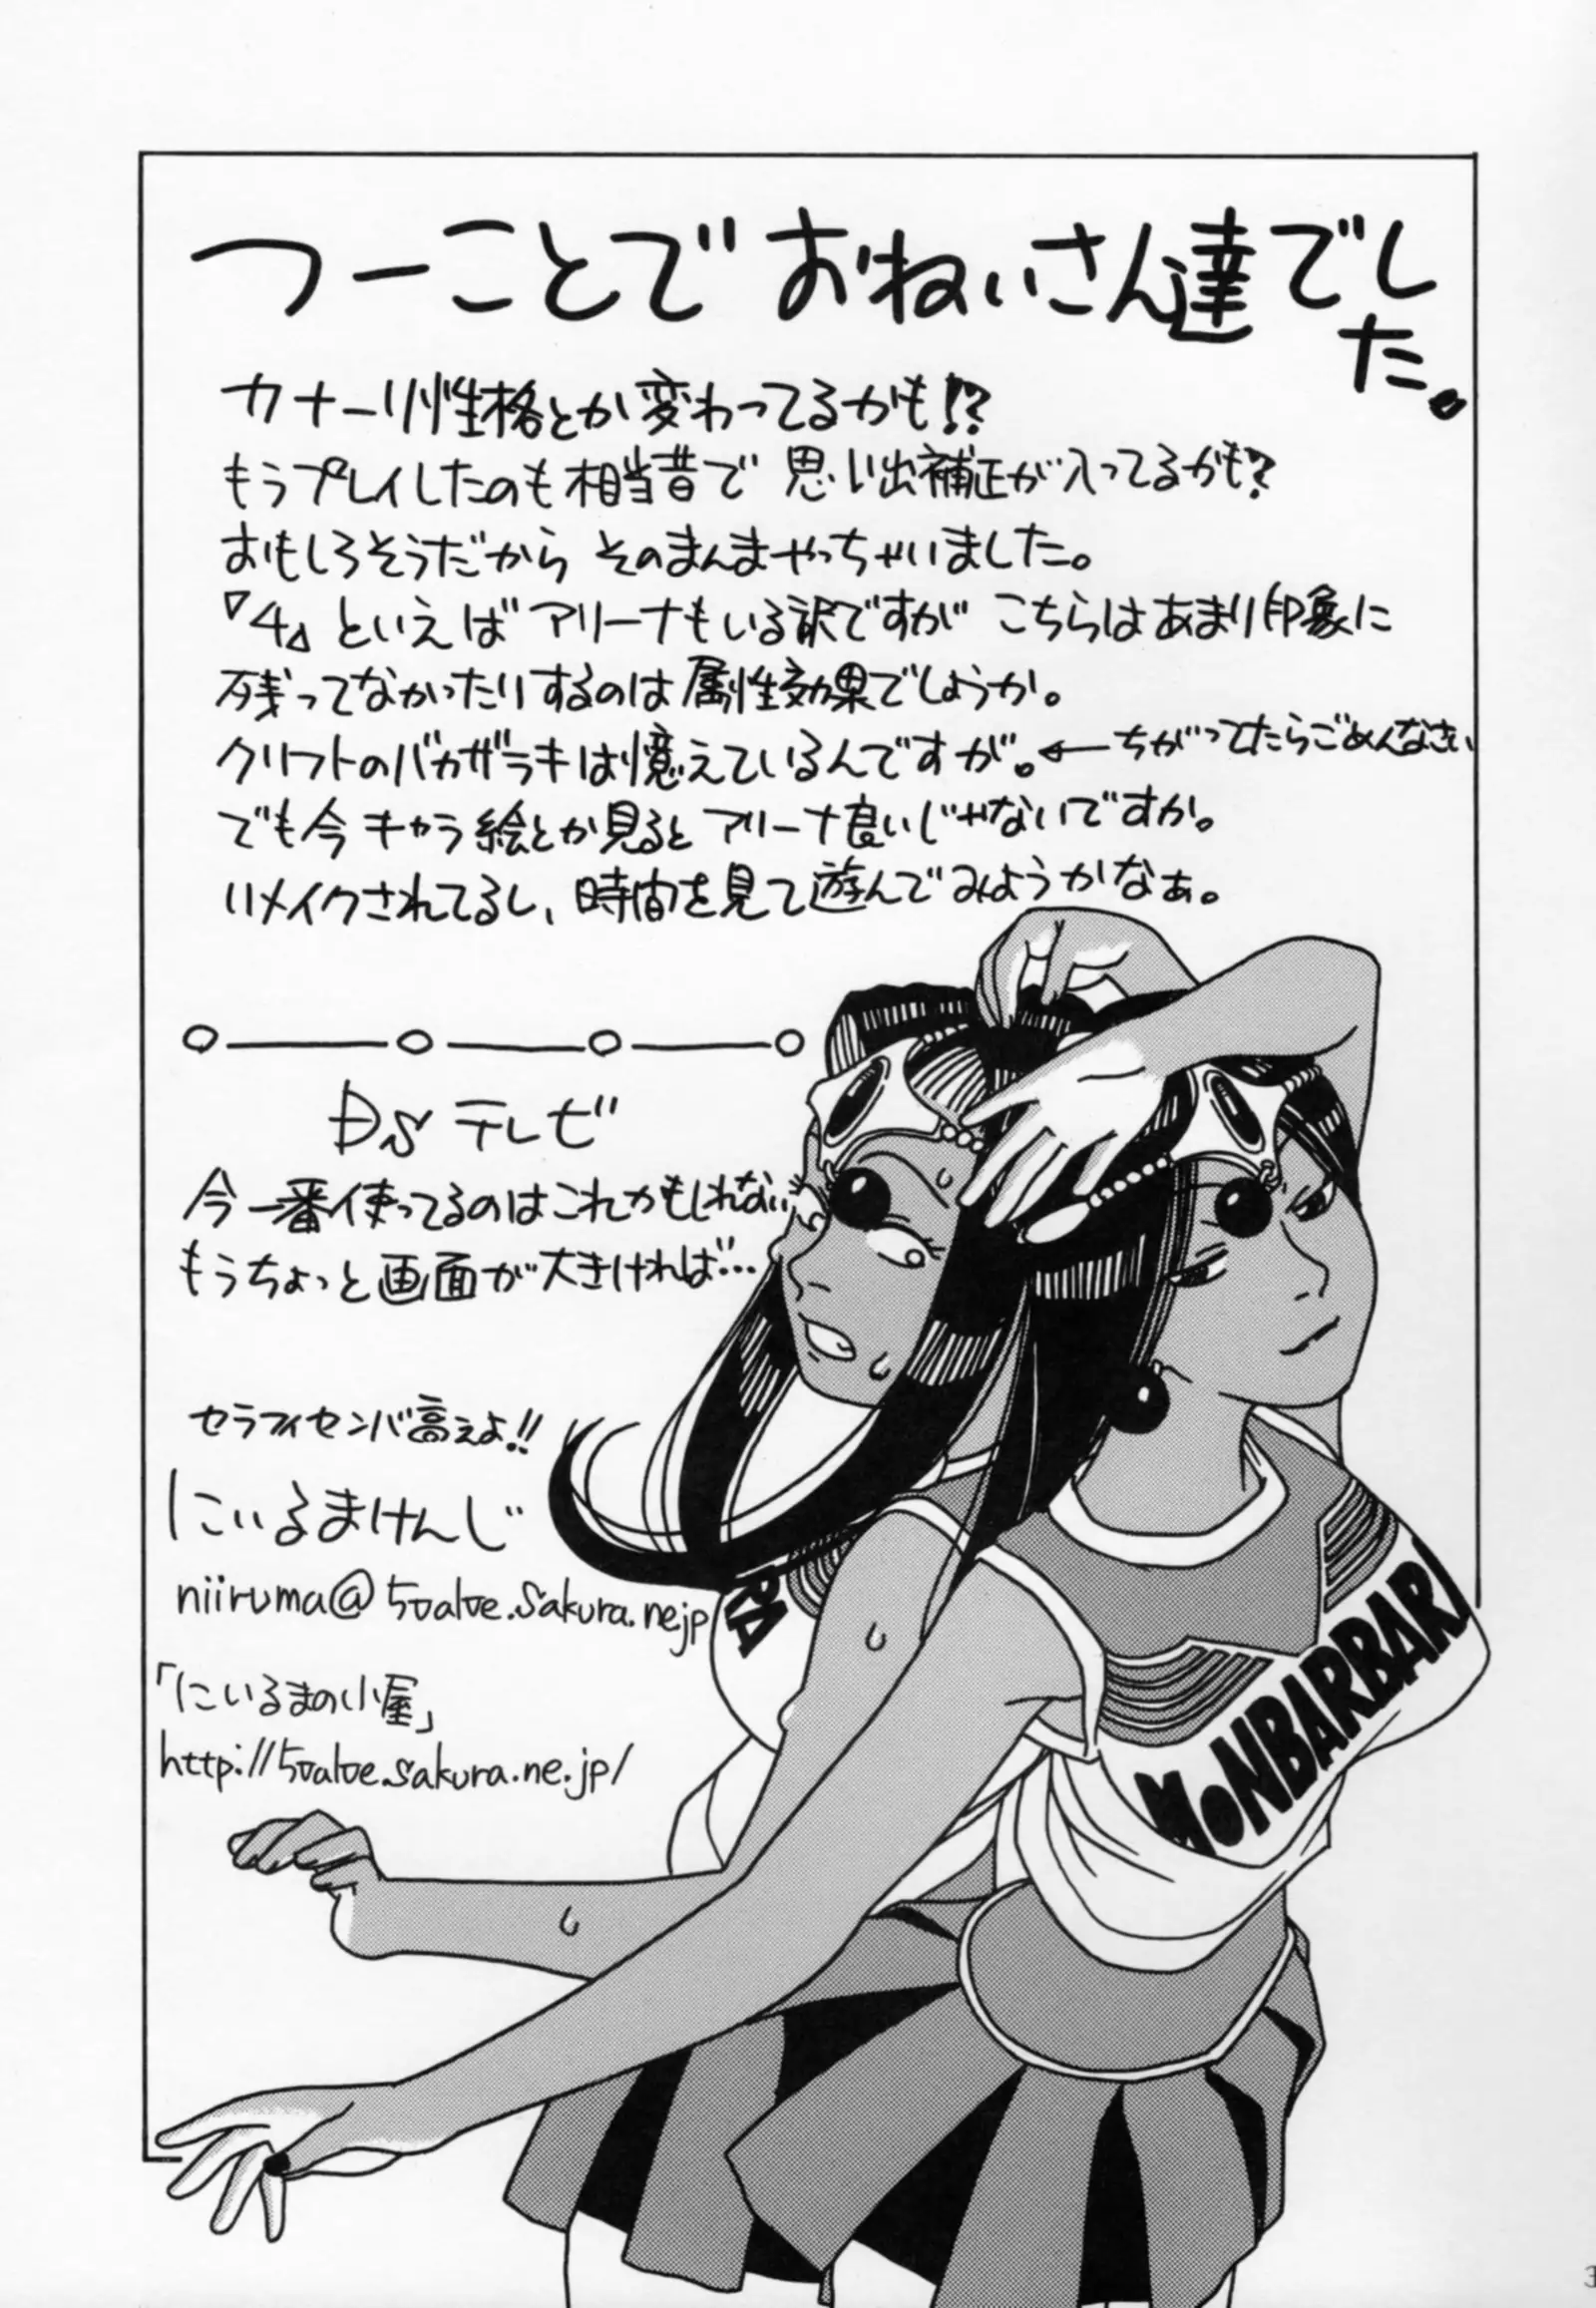 つーことで おねいさん達でし
た。
カナーリ性格とか変わってるかも!?
もうプレイしたのも相当昔で 思い出補正が入ってるかも?
おもしろそうだから そのまんまやっちゃいました。
『4』といえば アリーナもいる訳ですが こちらはあまり印象に
残ってなかったりするのは属性効果でしょうか。
クリフトのバカザラキは憶えているんですが。←ちがってたらごめんなさい
でも今キャラ絵とか見ると アリーナ良いじゃないですか。
リメイクされてるし、時間を見て遊んでみようかなぁ。
DSテレビ
今一番使ってるのはこれかもしれない
もうちょっと画面が大きければ…
セラフィセンバ高えよ!!
にいるまけんじ
niiruma@5valve.sakura.ne.jp
「にいるまの小屋」
http://5valve.sakura.ne.jp/
MONBARBARA